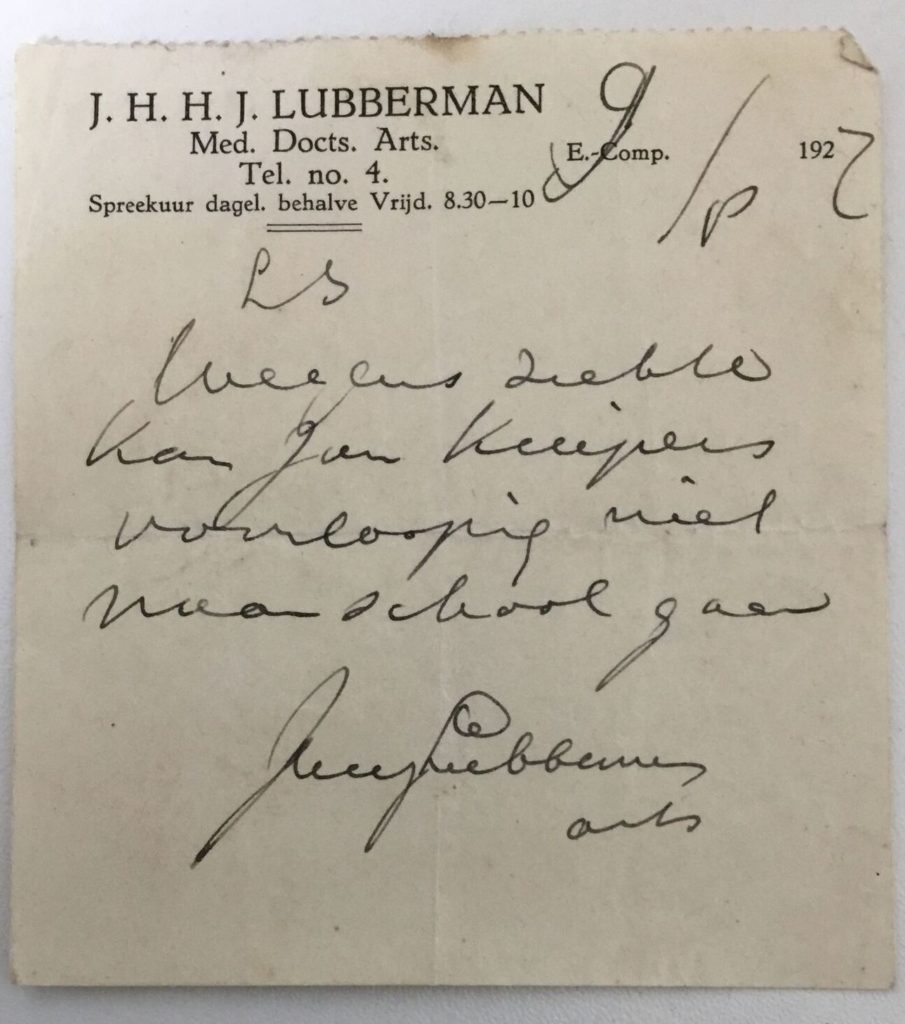 J. H. H. J. LUBBERMAN
Med. Docts. Arts.
Tel. no. 4.
Spreekuur dagel. behalve Vrijd. 8.30—10
E.-Comp. 9/ 1927
LS
Weegens ziekte
kan Jan Kuipers
voorloopig niet
naar school gaan
Lubberman
arts